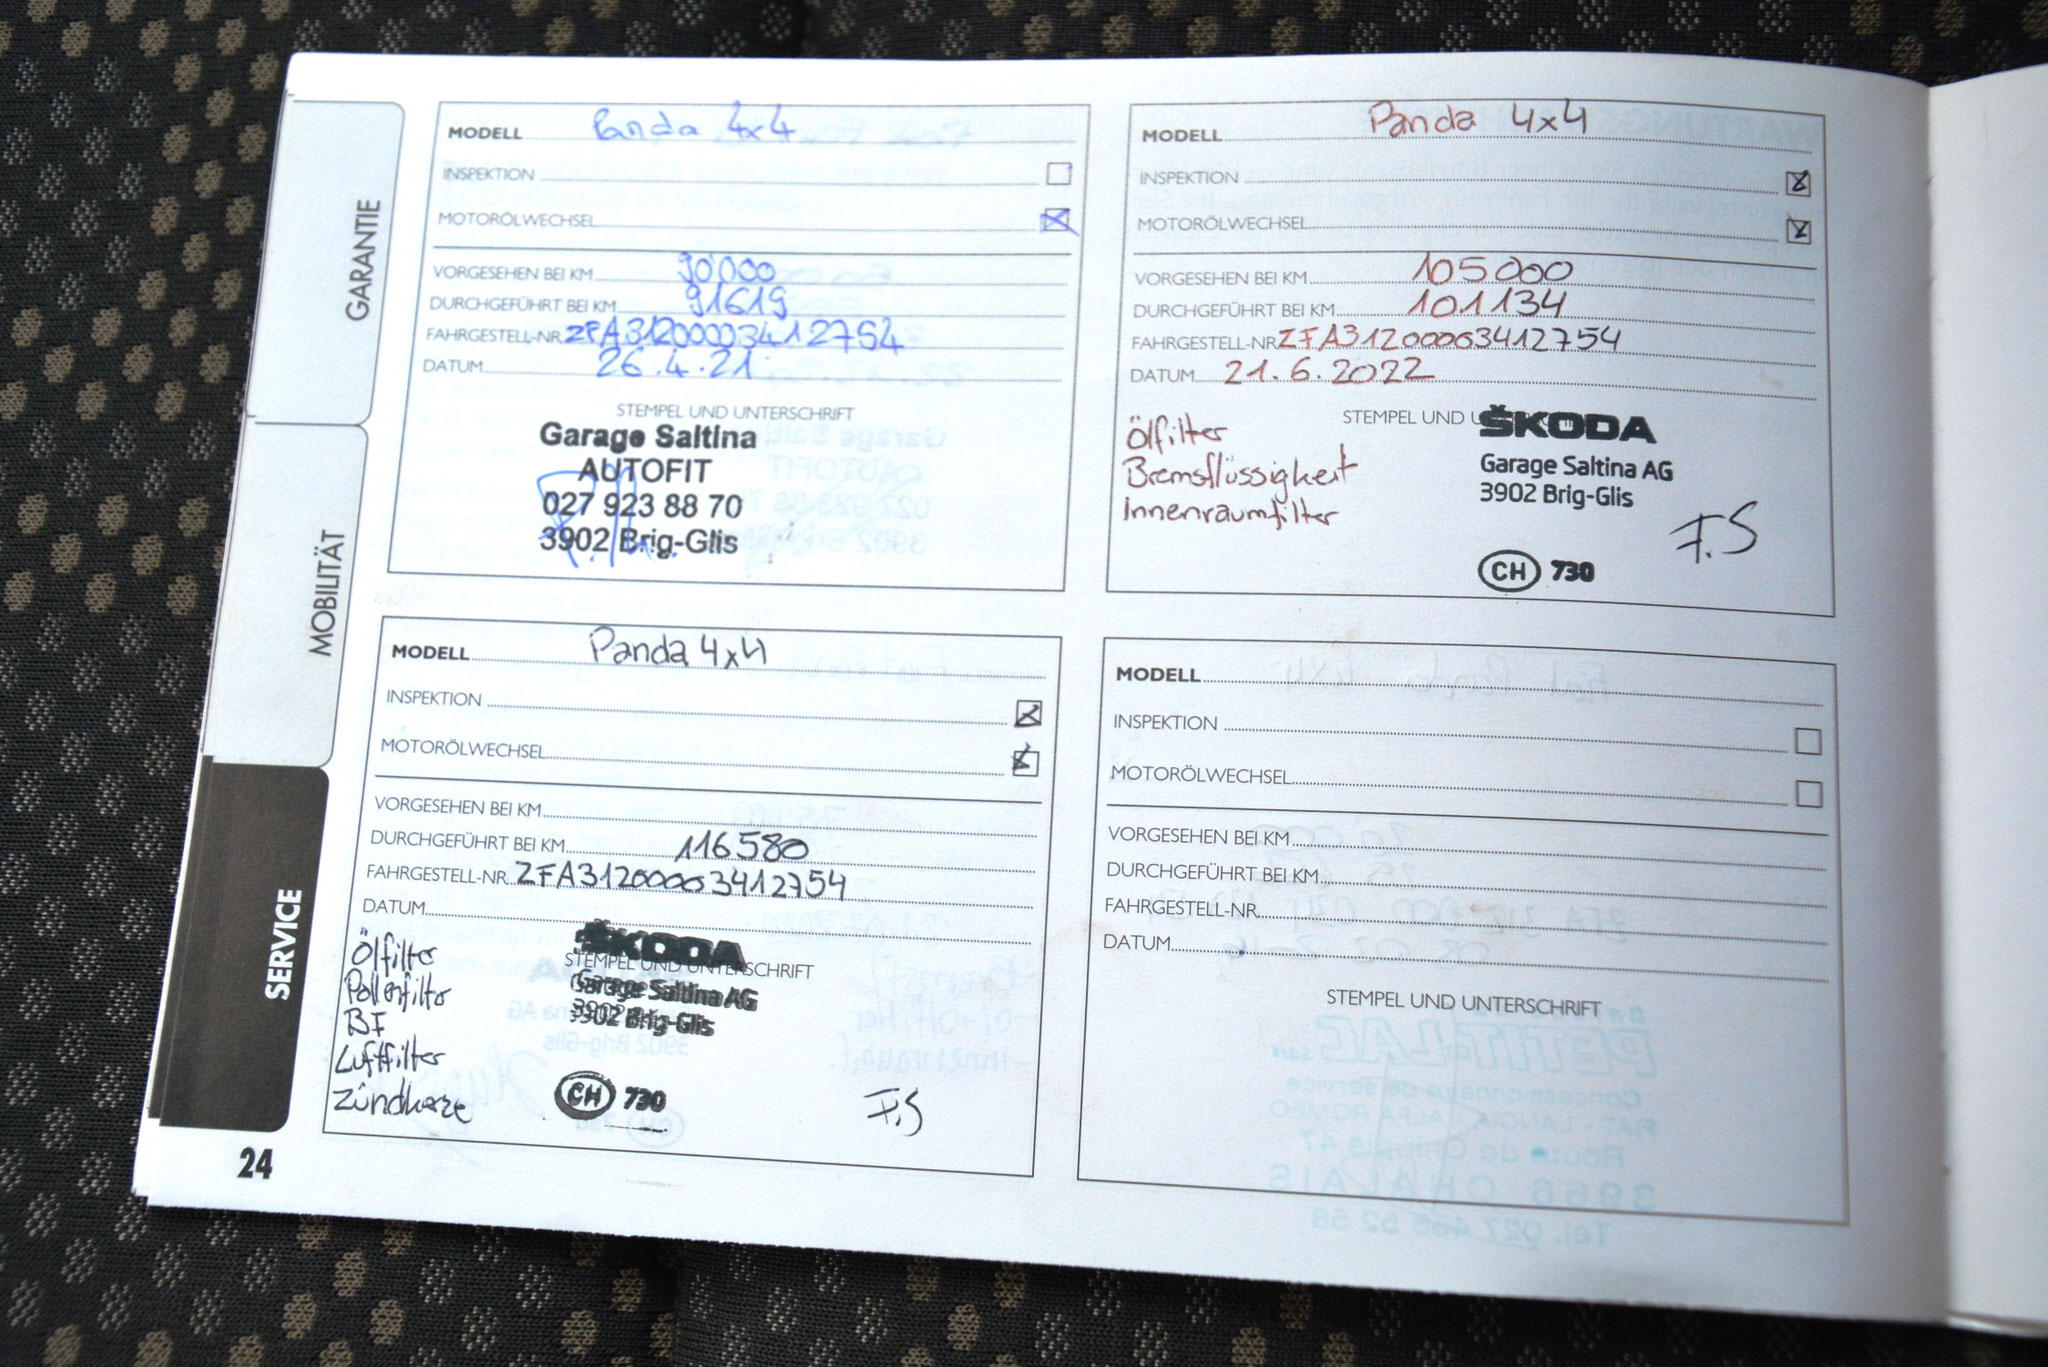 GARANTIE
MOBILITÄT
SERVICE
24
MODELL Panda 4x4
INSPEKTION
MOTORÖLWECHSEL
VORGESEHEN BEI KM 90'000
DURCHGEFÜHRT BEI KM 91619
FAHRGESTELL-NR. ZFA31200003412754
DATUM 26.4.21
STEMPEL UND UNTERSCHRIFT
Garage Saltina
AUTOFIT
027 923 88 70
3902 Brig-Glis
MODELL Panda 4x4
INSPEKTION
MOTORÖLWECHSEL
VORGESEHEN BEI KM 105000
DURCHGEFÜHRT BEI KM 101134
FAHRGESTELL-NR ZFA31200003412754
DATUM 21.6.2022
STEMPEL UND
ŠKODA
Garage Saltina AG
3902 Brig-Glis
CH 730
Ölfilter
Bremsflüssigkeit
Innenraumfilter
F.S
MODELL Panda 4x4
INSPEKTION
MOTORÖLWECHSEL
VORGESEHEN BEI KM
DURCHGEFÜHRT BEI KM 116580
FAHRGESTELL-NR. ZFA31200003412754
DATUM
ŠKODA
STEMPEL UND UNTERSCHRIFT
Garage Saltina AG
3902 Brig-Glis
CH 730
Ölfilter
Pollenfilter
BF
Luftfilter
Zündkerze
F.S
MODELL
INSPEKTION
MOTORÖLWECHSEL
VORGESEHEN BEI KM
DURCHGEFÜHRT BEI KM
FAHRGESTELL-NR.
DATUM
STEMPEL UND UNTERSCHRIFT